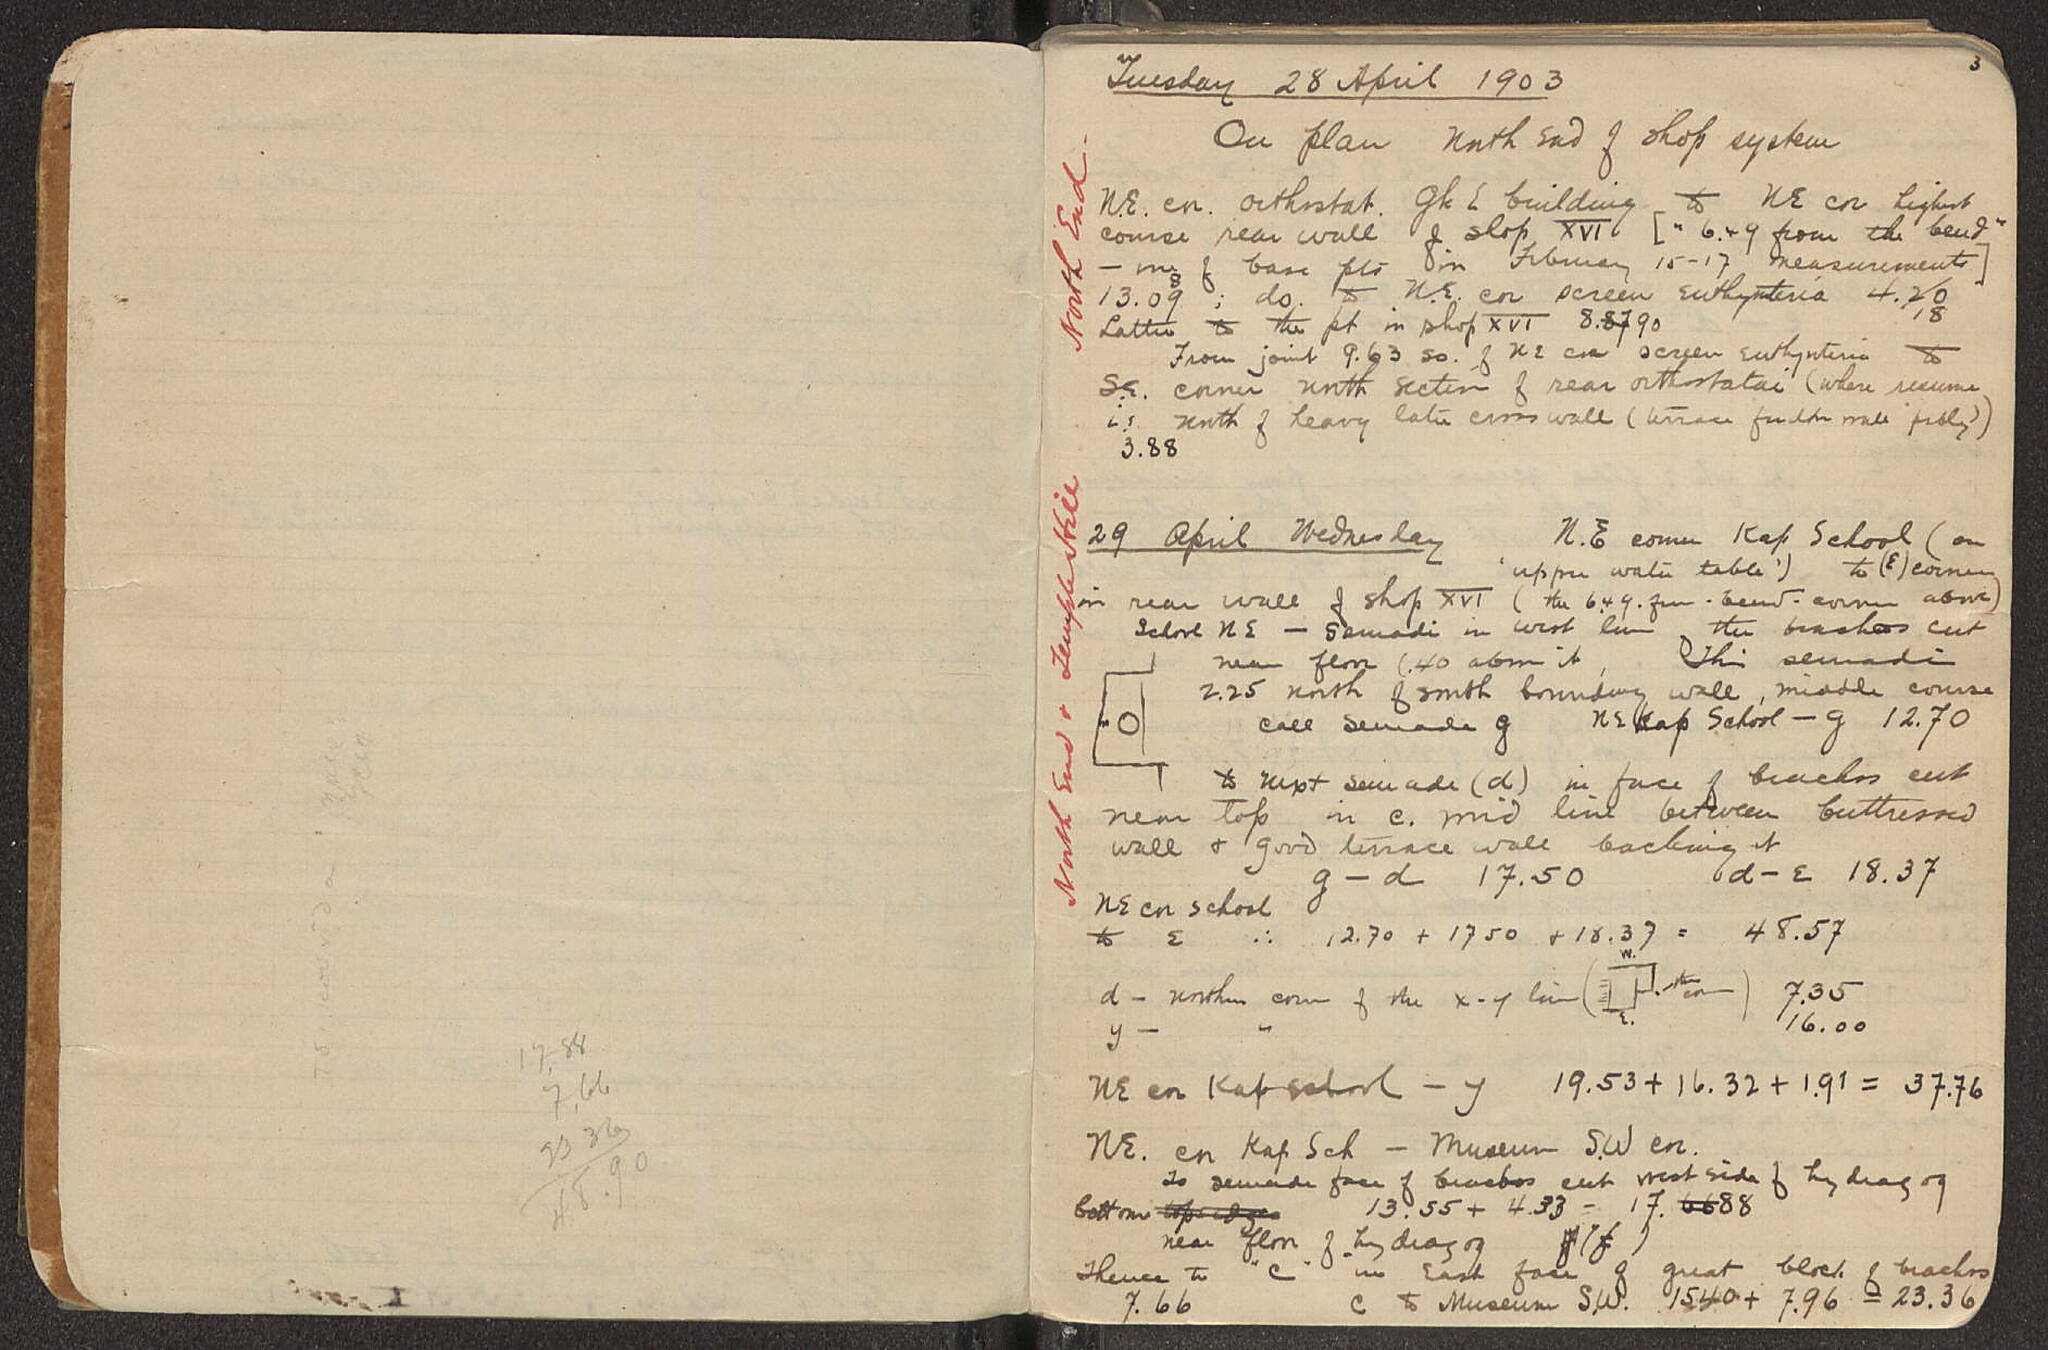 17.88
7.66
23 36
48.90
3
Tuesday 28 April 1903
On plan north End of shop system
N.E. cor. orthostat. Gk E building to NE cor highest
course rear wall of shop XVI ["6.49 from the bend"
— one of base pts in February 15-17 measurements]
13.09 8 ; do. to N.E. cor screen euthynteria 4.20
18
Latter to the pt in shop XVI 8.87 90
From joint 9.63 so. of NE cor screen euthynteria to
S.E. corner north section of rear orthostatai (where resume
i.e. north of heavy later cross wall (terrace fndtn wall probly?)
3.88
North End.
29 April Wednesday N.E corner Kap School (on
'upper water table') to (E) corner
in rear wall of shop XVI (the 6.49. from - bend - corner above)
School NE — semadi in west line the brachos cut
near floor (.40 above it, This semadi
2.25 north of south boundary wall, middle course
call semade g NE Kap School — g 12.70
to next semade (d) in face of brachos cut
near top in c. mid line between buttressed
wall & good terrace wall backing it
g — d 17.50 d — E 18.37
NE cor school
to E ∴ 12.70 + 17 50 + 18.37 = 48.57
d — northern corner of the x-y line ( W. E. the corn ) 7.35
y — " 16.00
NE cor Kap school — y 19.53 + 16.32 + 1.91 = 37.76
NE. cor Kap Sch — Museum S.W cor.
To semade face of brachos cut west side of hydragog
bottom top edge 13.55 + 4.33 = 17.66 88
near floor of hydragog (f)
Thence to "C" in East face of great block of brachos
7.66 C to Museum S.W. 15.40 + 7.96 = 23.36
North End & Temple Hill